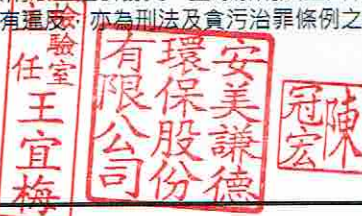 有違反，亦為刑法及貪污治罪條例之
檢驗室
主任
王宜梅
安美謙德
環保股份
有限公司
陳
冠宏